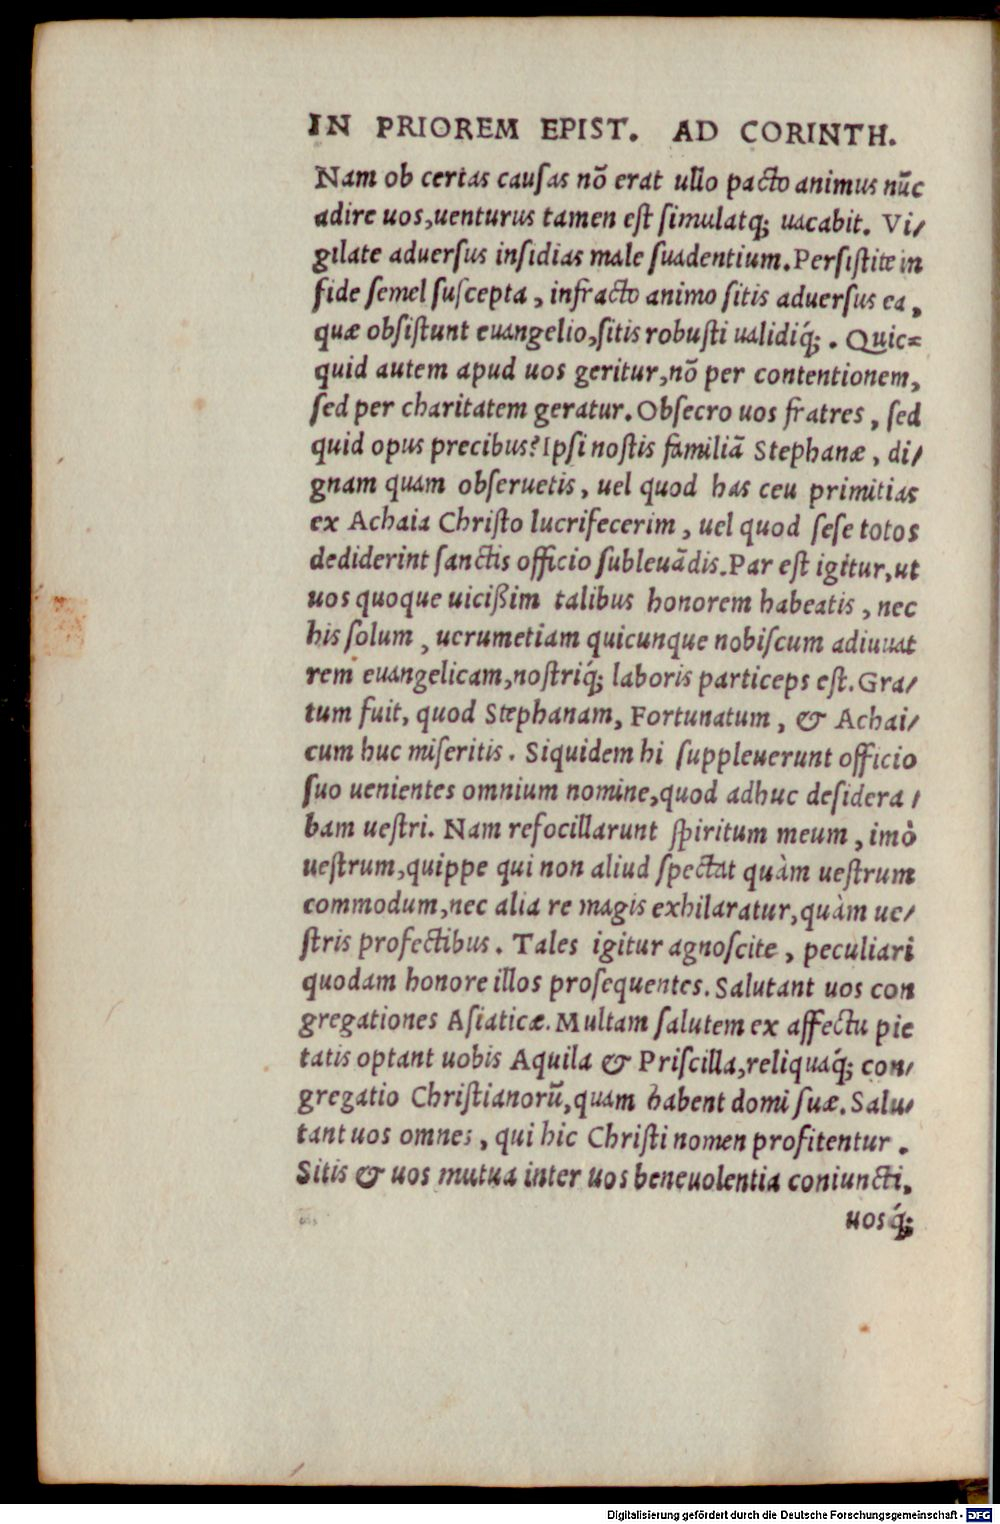 IN PRIOREM EPIST. AD CORINTH.
Nam ob certas cauſas nõ erat ullo pacto animus nũc
adire uos,uenturus tamen eſt ſimulatq́; uacabit. Vi/
gilate aduerſus inſidias male ſuadentium.Perſiſtite in
fide ſemel ſuſcepta, infracto animo ſitis aduerſus ea,
quæ obſiſtunt euangelio,ſitis robuſti ualidiq́;. Quic=
quid autem apud uos geritur,nõ per contentionem,
ſed per charitatem geratur.Obſecro uos fratres, ſed
quid opus precibus?Ipſi noſtis familiã Stephanæ, di/
gnam quam obſeruetis, uel quod has ceu primitias
ex Achaia Chriſto lucrifecerim, uel quod ſeſe totos
dediderint ſanctis officio ſubleuãdis.Par eſt igitur,ut
uos quoque uicißim talibus honorem habeatis, nec
his ſolum, uerumetiam quicunque nobiſcum adiuuat
rem euangelicam,noſtriq́; laboris particeps eſt.Gra/
tum fuit, quod Stephanam, Fortunatum, & Achai/
cum huc miſeritis. Siquidem hi ſuppleuerunt officio
ſuo uenientes omnium nomine,quod adhuc deſidera/
bam ueſtri. Nam refocillarunt ſpiritum meum, imò
ueſtrum,quippe qui non aliud ſpectat quàm ueſtrum
commodum,nec alia re magis exhilaratur,quàm ue/
ſtris profectibus. Tales igitur agnoſcite, peculiari
quodam honore illos proſequentes. Salutant uos con
gregationes Aſiaticæ. Multam ſalutem ex affectu pie
tatis optant uobis Aquila & Priſcilla,reliquaq́; con/
gregatio Chriſtianorũ,quam habent domi ſuæ. Salu/
tant uos omnes, qui hic Chriſti nomen profitentur.
Sitis & uos mutua inter uos beneuolentia coniuncti,
uosq́;
Digitalisierung gefördert durch die Deutsche Forschungsgemeinschaft - DFG